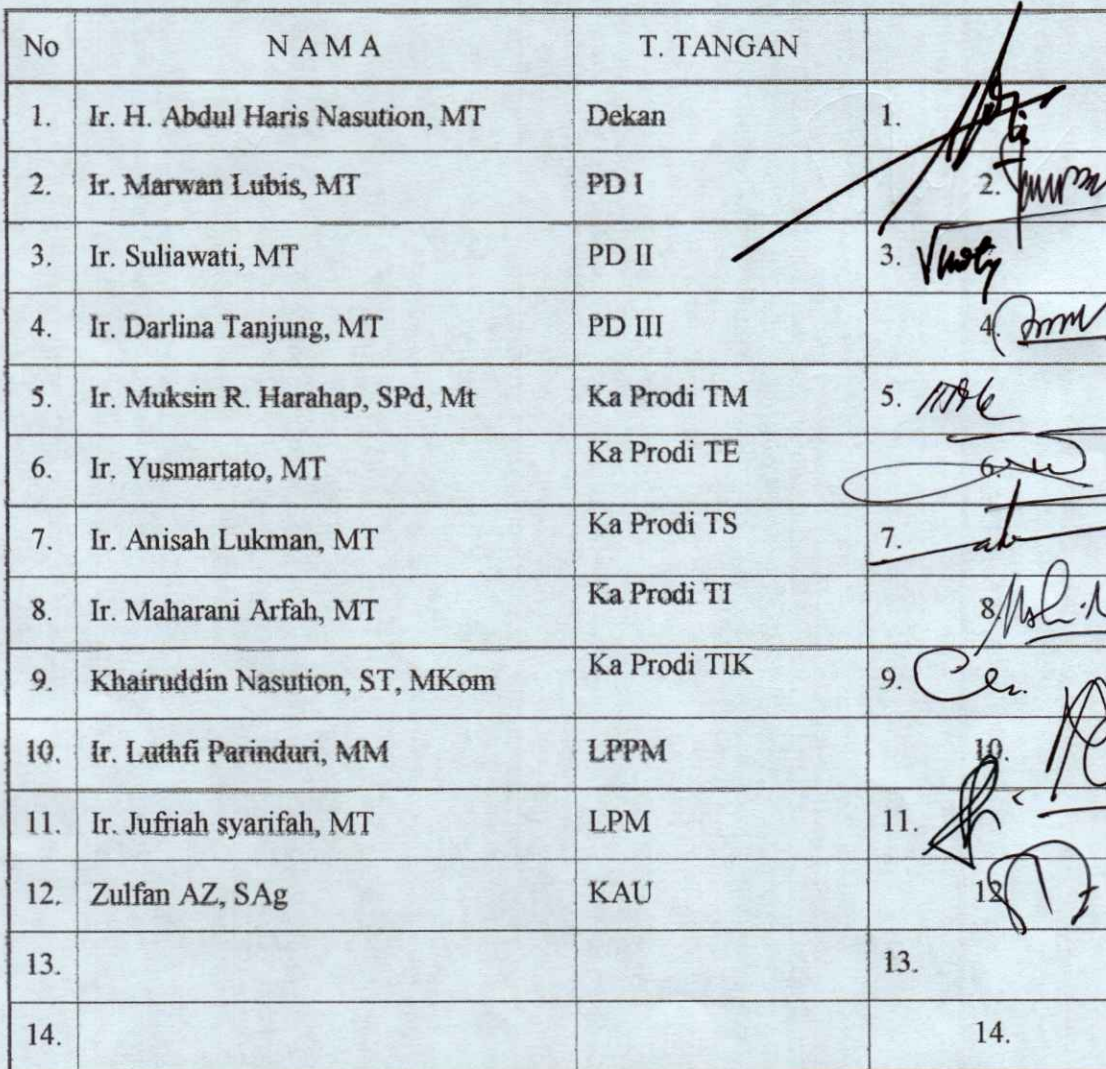 No N A M A T. TANGAN
1. Ir. H. Abdul Haris Nasution, MT Dekan 1.
2. Ir. Marwan Lubis, MT PD I 2.
3. Ir. Suliawati, MT PD II 3.
4. Ir. Darlina Tanjung, MT PD III 4.
5. Ir. Muksin R. Harahap, SPd, Mt Ka Prodi TM 5.
6. Ir. Yusmartato, MT Ka Prodi TE 6.
7. Ir. Anisah Lukman, MT Ka Prodi TS 7.
8. Ir. Maharani Arfah, MT Ka Prodi TI 8.
9. Khairuddin Nasution, ST, MKom Ka Prodi TIK 9.
10. Ir. Luthfi Parinduri, MM LPPM 10.
11. Ir. Jufriah syarifah, MT LPM 11.
12. Zulfan AZ, SAg KAU 12
13. 13.
14. 14.